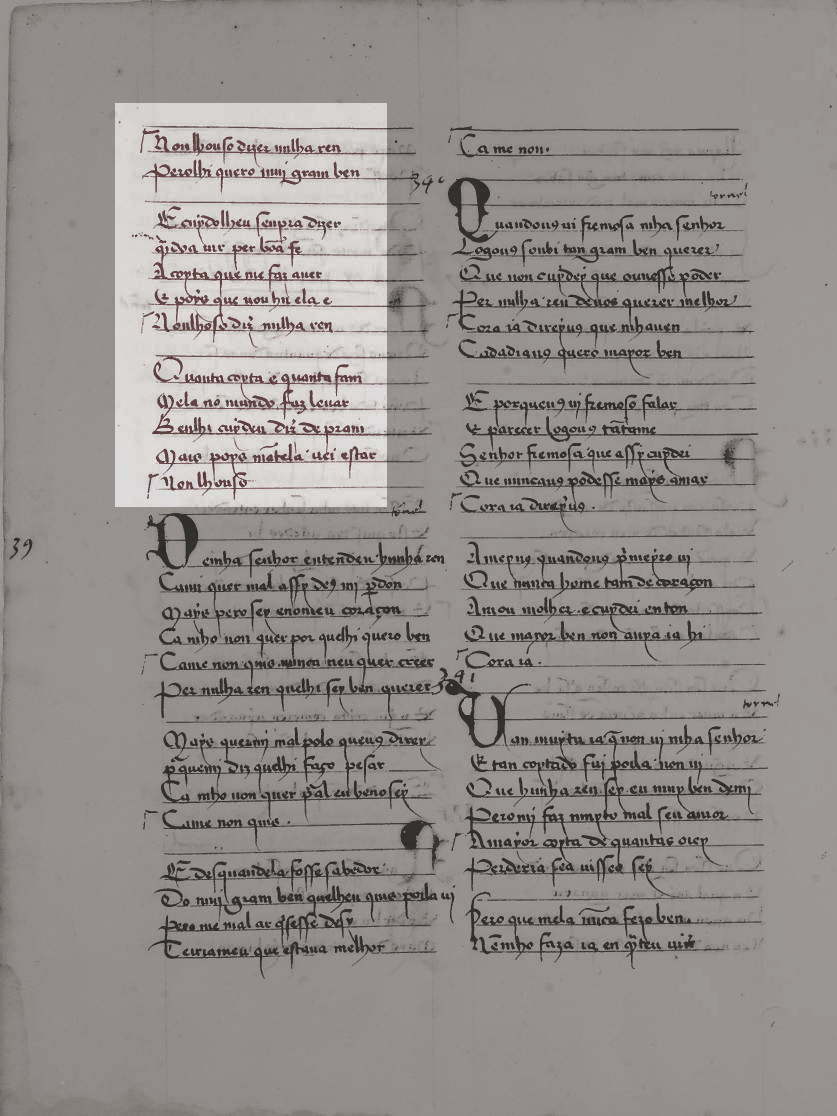 Non lhouso dizer nulha ren
Perolhi quero muj gram ben
E cuydolheu senpra dizer
q̃ doa uir per boã fe
A coyta que me faz auer
E poys que nou hũ ela e
Nonlhoso diz̃ nulha ren
Quanta coyta e quanta fam
Mela no mundo faz leuar
Benlhi cuydeu diz̃ de pram
Mais poys mãtela uei estar
Non lhouso
39
tornel
Deinha senhor entendeu hunha ren
Cami quer mal assy deꝯ mi p̱don
Mays pero sey enomeu coraçon
Ca mho non quer por quelhi quero ben
Came non quis nunca neu quer creer
Per nulha ren quelhi sey ben querer
Mays quermj mal polo queuꝯ direr
p̃quemj diz quelhi faço pesar
Ca mho non quer p̃al eu beno sey
Came non quis.
E desquandela fosse sabedor
Do muj gram ben quelheu quis poila uj
Pero me mal ar q̃sesse desy
Terriameu que estaua melhor
Ca me non.
390
tornel
Quandouꝯ ui fremosa mha senhor
Logouꝯ soubi tan gram ben querer
Que non cuydey que ouuesse poder
Per nulha ren deuos querer melhor
E ora ia direyuꝯ que mhauen
Cadadiauꝯ quero mayor ben
E porqueuꝯ uj fremoso falar
E parecer logouꝯ tãtame
Senhor fremosa que assy cuydei
Que nuncauꝯ podesse mays amar
E ora ia direyuꝯ.
Ameyuꝯ quandouꝯ p̃meyro uj
Que nunca home tam de coraçon
Amou molher e cuydei enton
Que mayor ben non auya ia hi
E ora ia.
391
tornel
Uan muytu ia q̃ non uj mha senhor
E tan coytado fuj poila non uj
Que hunha ren sey eu muy ben demj
Peromj faz muyto mal seu amor
A mayor coyta de quantas oiey
Perderia sea uisse sey
Pero que mela nũca fezo ben
Nẽmho faza ia en q̃teu uiu̾